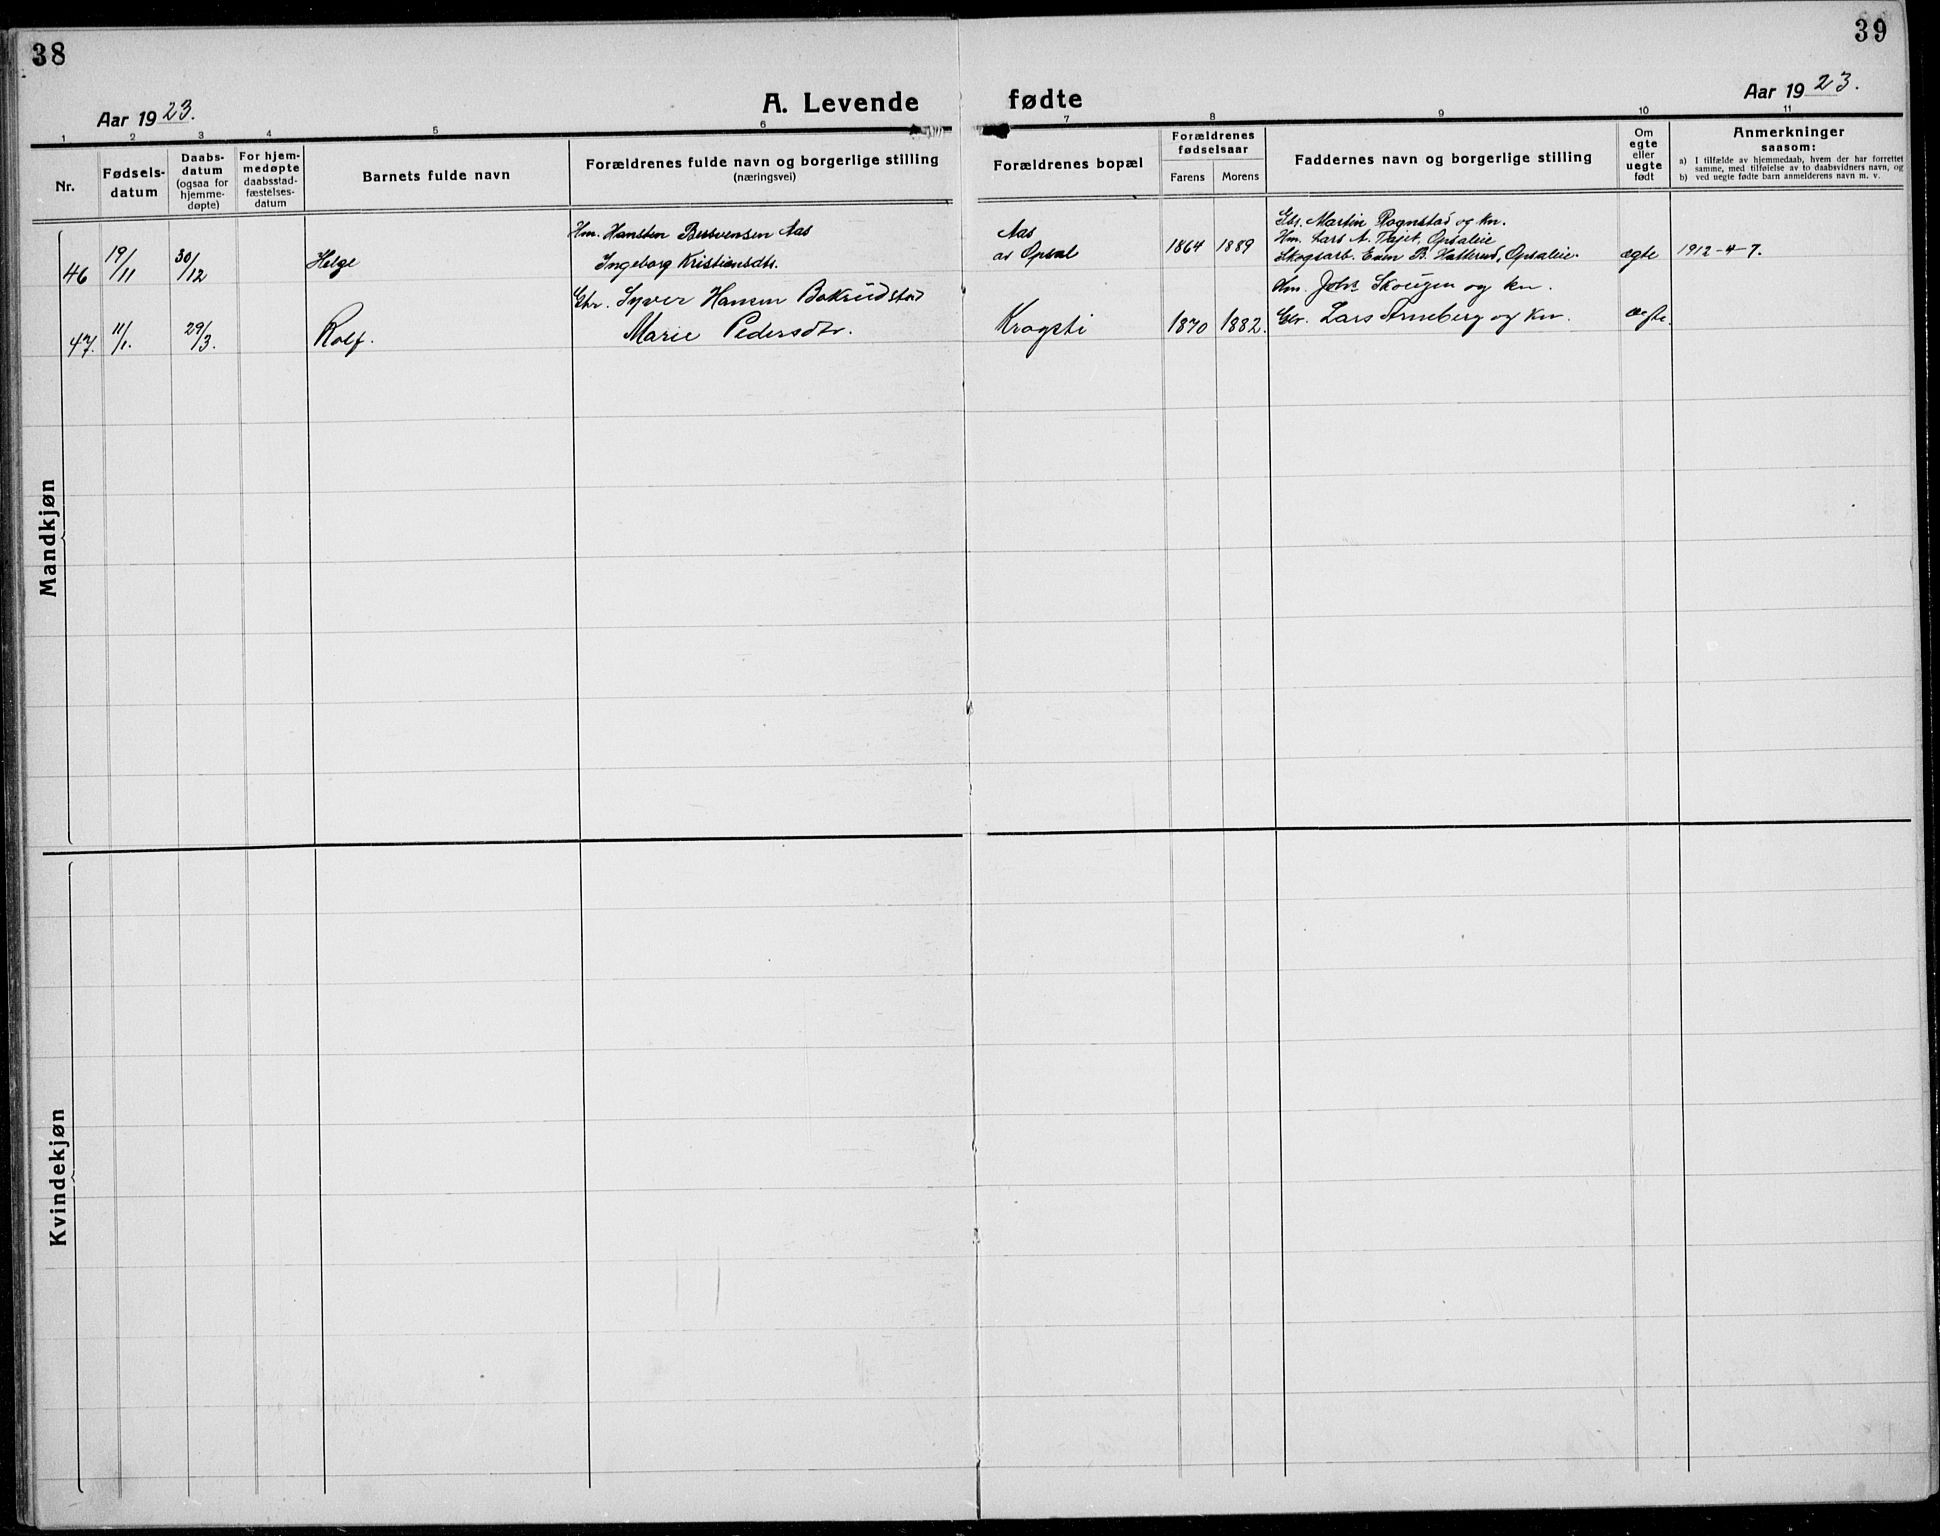 38
39
Aar 1923.
A. Levende fødte
Aar 1923.
1 2 3 4 5 6 7 8 9 10 11
Nr.
Fødsels-
datum
Daabs-
datum
(ogsaa for
hjemme-
døpte)
For hjem-
medøpte
daabsstad-
fæstelses-
datum
Barnets fulde navn
Forældrenes fulde navn og borgerlige stilling
(næringsvei)
Forældrenes bopæl
Forældrenes
fødselsaar
Farens Morens
Faddernes navn og borgerlige stilling
Om
egte
eller
uegte
født
Anmerkninger
saasom:
a) I tilfælde av hjemmedaab, hvem der har forrettet
samme, med tilføielse av to daabsvidners navn, og
b) ved uegte fødte barn anmelderens navn m. v.
Mandkjøn
46 19/11 30/12 Helge
Hm. Hansten Aas
Ingeborg Kristiansdtr.
Aas
av Opsal
1864 1889
Gbr. Martin Rognstad og kn.
Hm. Lars A. Tajet, Opsaleie
Skogsarb. Even B. Hatterud, Opsaleie.
ægte
1912-4-7.
47. 11/1. 29/3. Rolf.
Gbr. Syver Hansen Bakrudstad
Marie Pedersdtr.
Krogsti
1870 1882.
Hm. Johs Skougen og kn.
Gbr. Lars Arneberg og kn.
ægte.
Kvindekjøn